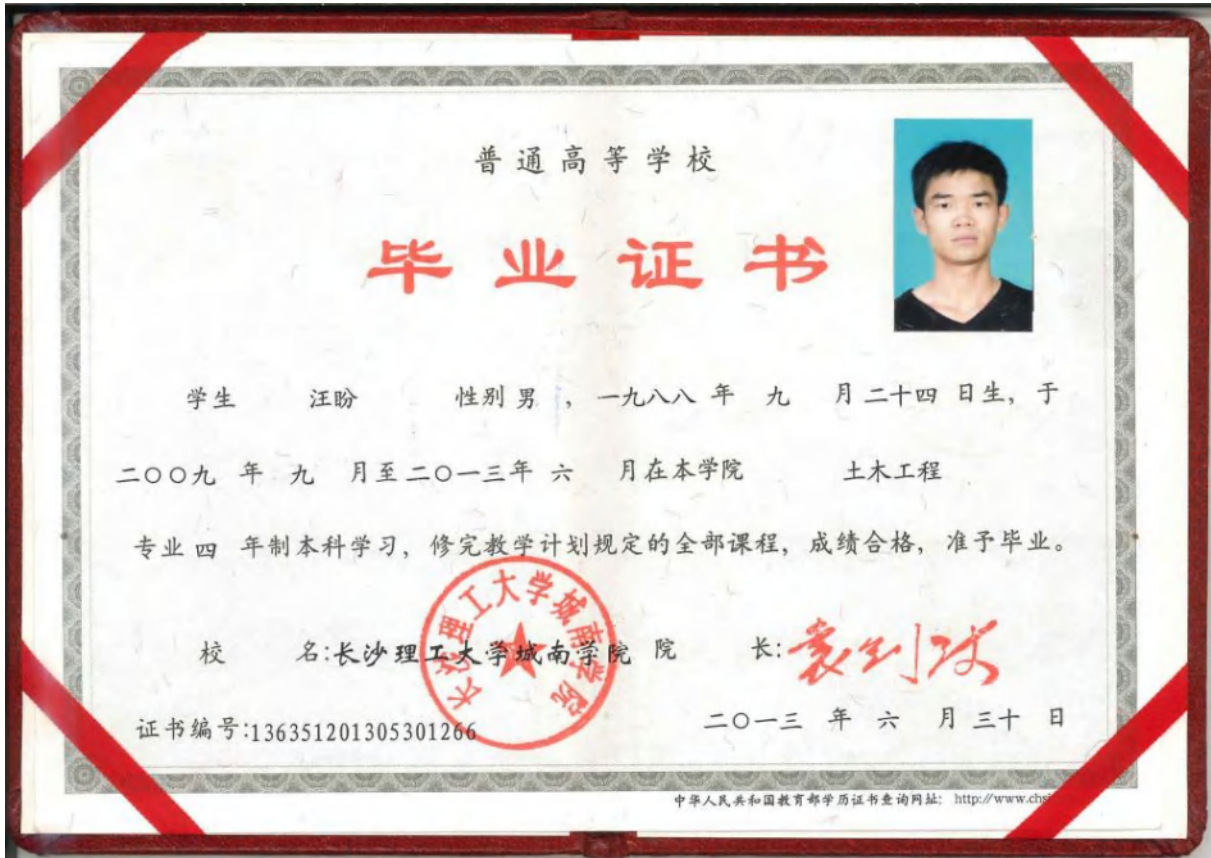 普通高等学校
毕业证书
学生 汪盼 性别 男 , 一九八八 年 九 月 二十四 日生, 于
二〇〇九 年 九 月至 二〇一三 年 六 月在本学院 土木工程
专业 四 年制本科学习, 修完教学计划规定的全部课程, 成绩合格, 准予毕业。
校 名:长沙理工大学城南学院 院 长:
长沙理工大学城南学院
证书编号:136351201305301266 二〇一三 年 六 月 三十 日
中华人民共和国教育部学历证书查询网址: http://www.chsi